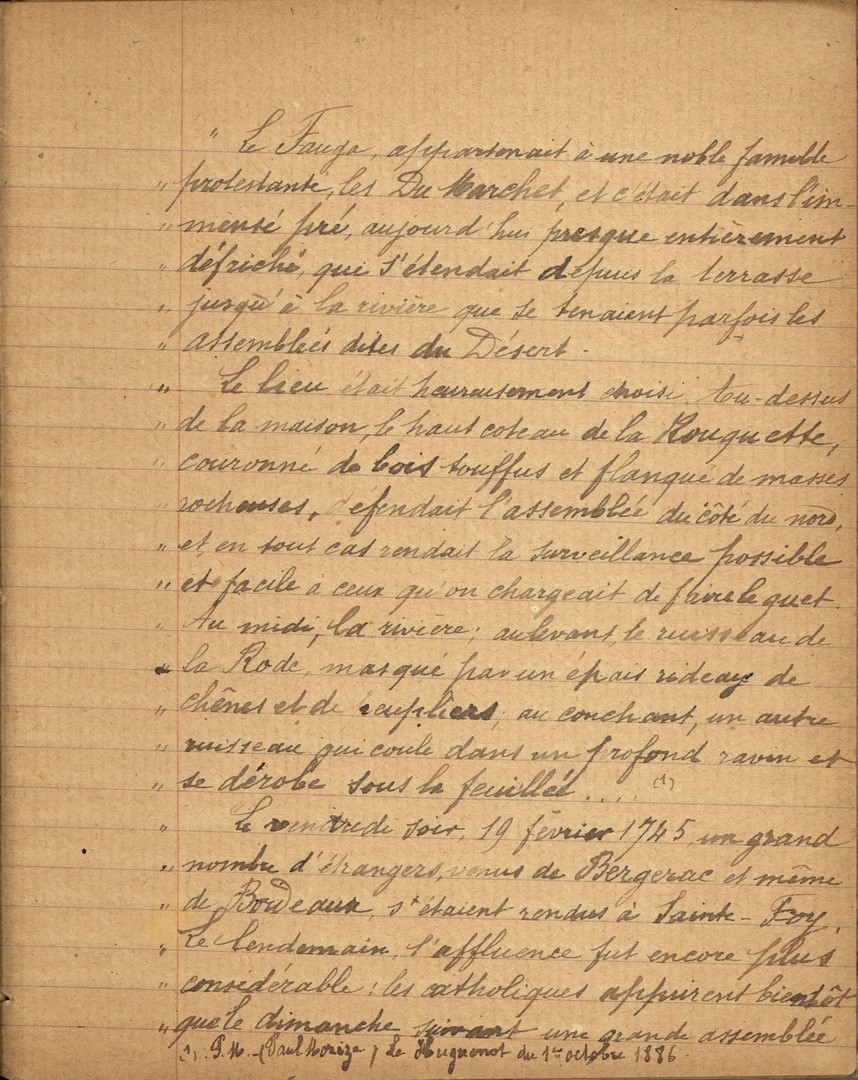 " Le Fauga, appartenait à une noble famille
" protestante, les Du Marchet, et c'était dans l'im-
" mense pré, aujourd'hui presque entièrement
" défriché, qui s'étendait depuis la terrasse
" jusqu'à la rivière que se tenaient parfois les
" assemblées dites du Désert.
" Le lieu était heureusement choisi. Au-dessus
" de la maison, le haut coteau de la Rouquette,
" couronné de bois touffus et flanqué de masses
" rocheuses, défendait l'assemblée du côté du nord,
" et en tout cas rendait la surveillance possible
" et facile à ceux qu'on chargeait de faire le guet.
" Au midi, la rivière; au levant, le ruisseau de
" la Rode, masqué par un épais rideau de
" chênes et de peupliers; au couchant, un autre
" ruisseau qui coule dans un profond ravin et
" se dérobe sous la feuillée.... (1)
" Le vendredi soir, 19 février 1745, un grand
" nombre d'étrangers, venus de Bergerac et même
" de Bordeaux, s'étaient rendus à Sainte-Foy.
" Le lendemain, l'affluence fut encore plus
" considérable; les catholiques apprirent bientôt
" que le dimanche suivant une grande assemblée
(1). P.M. - (Paul      ) Le Huguenot du 1er octobre 1886.